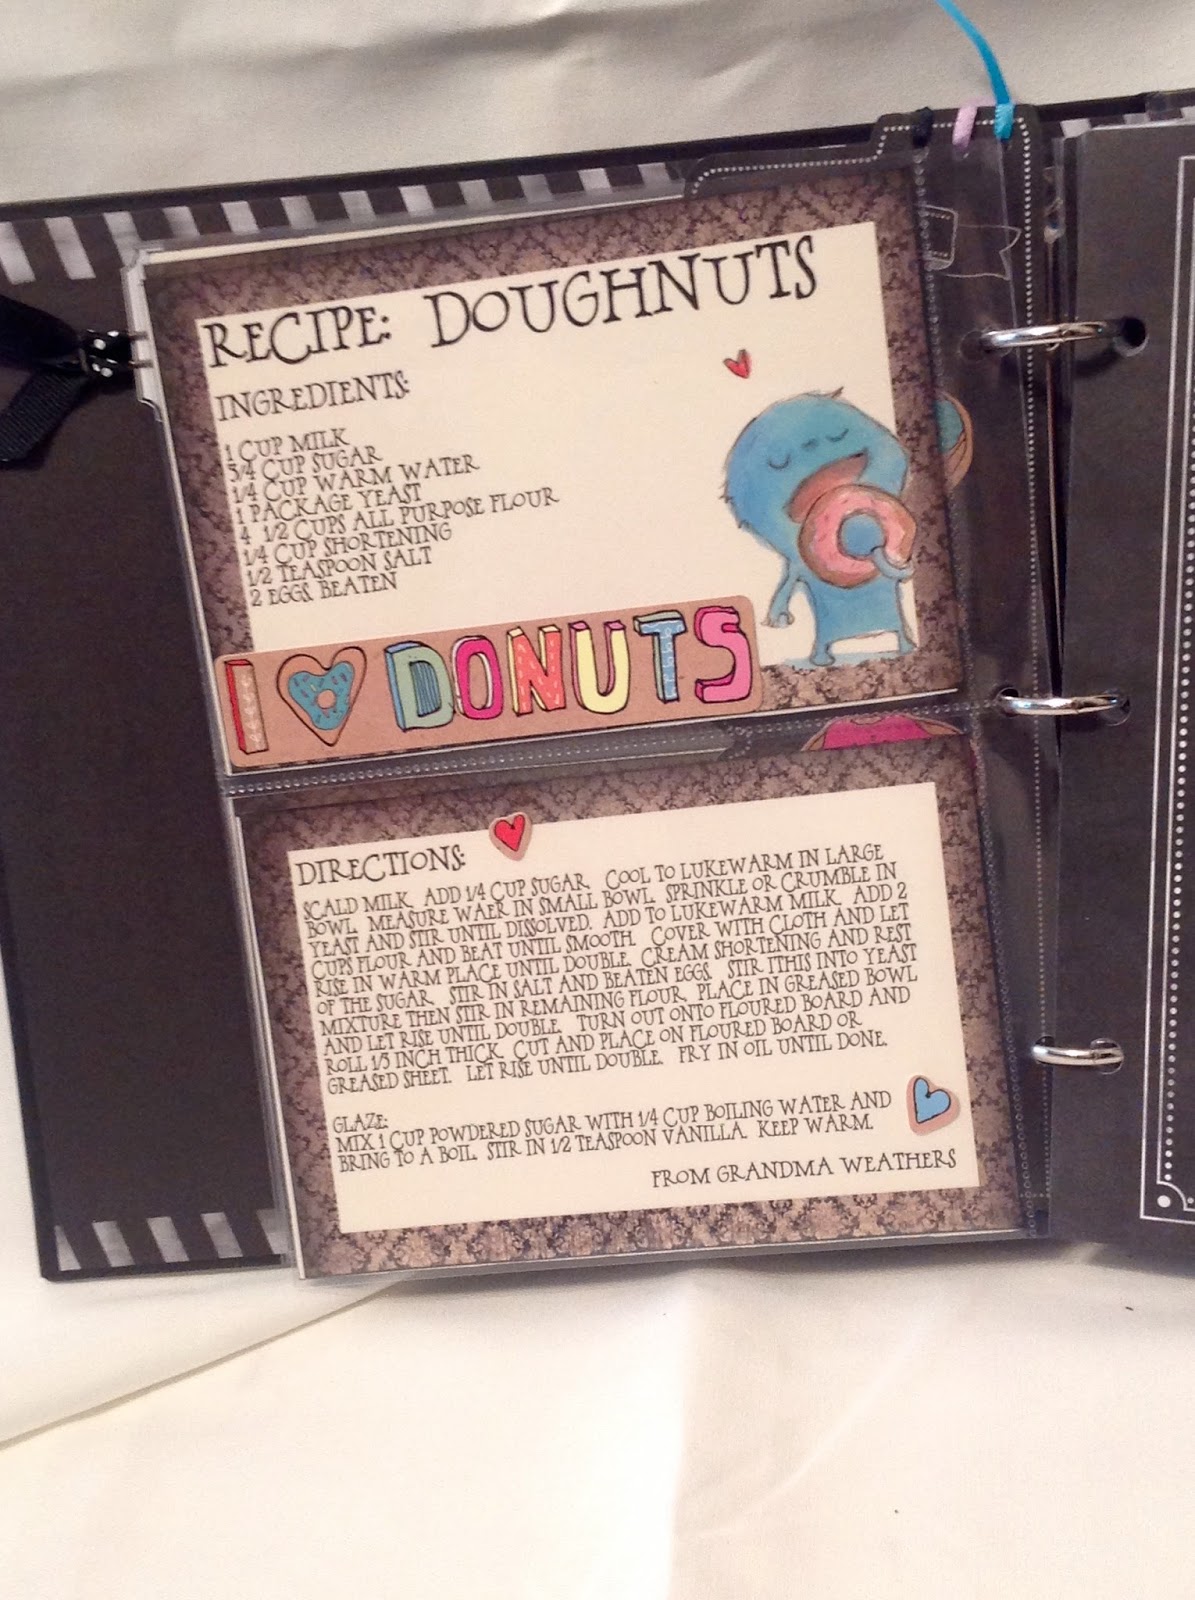 RECIPE: DOUGHNUTS
INGREDIENTS:
1 CUP MILK
3/4 CUP SUGAR
1/4 CUP WARM WATER
1 PACKAGE YEAST
4 1/2 CUPS ALL PURPOSE FLOUR
1/4 CUP SHORTENING
1/2 TEASPOON SALT
2 EGGS, BEATEN
I DONUTS
DIRECTIONS:
SCALD MILK. ADD 1/4 CUP SUGAR. COOL TO LUKEWARM IN LARGE
BOWL. MEASURE WAER IN SMALL BOWL. SPRINKLE OR CRUMBLE IN
YEAST AND STIR UNTIL DISSOLVED. ADD TO LUKEWARM MILK. ADD 2
CUPS FLOUR AND BEAT UNTIL SMOOTH. COVER WITH CLOTH AND LET
RISE IN WARM PLACE UNTIL DOUBLE. CREAM SHORTENING AND REST
OF THE SUGAR. STIR IN SALT AND BEATEN EGGS. STIR ITHIS INTO YEAST
MIXTURE THEN STIR IN REMAINING FLOUR. PLACE IN GREASED BOWL
AND LET RISE UNTIL DOUBLE. TURN OUT ONTO FLOURED BOARD AND
ROLL 1/3 INCH THICK. CUT AND PLACE ON FLOURED BOARD OR
GREASED SHEET. LET RISE UNTIL DOUBLE. FRY IN OIL UNTIL DONE.
GLAZE:
MIX 1 CUP POWDERED SUGAR WITH 1/4 CUP BOILING WATER AND
BRING TO A BOIL. STIR IN 1/2 TEASPOON VANILLA. KEEP WARM.
FROM GRANDMA WEATHERS